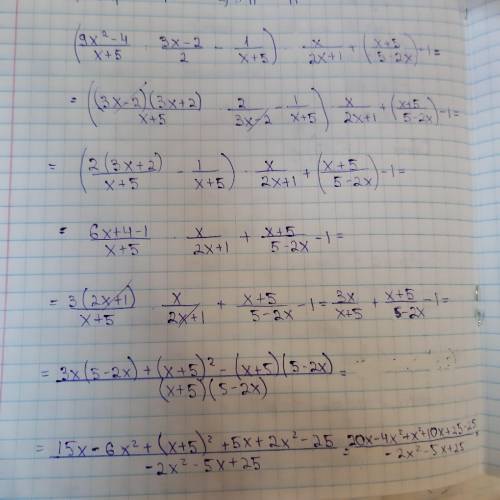 ((9x²-4)/(x+5) · (3x-2)/2 - 1/(x+5)) · x/(2x+1) + ((x+5)/(5-2x)) -1=
= (((3x-2)(3x+2))/(x+5) · 2/(3x-2) - 1/(x+5)) · x/(2x+1) + ((x+5)/(5-2x)) -1=
= (2(3x+2)/(x+5) - 1/(x+5)) · x/(2x+1) + ((x+5)/(5-2x)) -1=
= (6x+4-1)/(x+5) · x/(2x+1) + (x+5)/(5-2x) -1=
= 3(2x+1)/(x+5) · x/(2x+1) + (x+5)/(5-2x) -1= 3x/(x+5) + (x+5)/(5-2x) -1=
= (3x(5-2x)+(x+5)²-(x+5)(5-2x))/((x+5)(5-2x)) =
= (15x-6x²+(x+5)²+5x+2x²-25)/(-2x²-5x+25) = (20x-4x²+x²+10x+25-25)/(-2x²-5x+25)